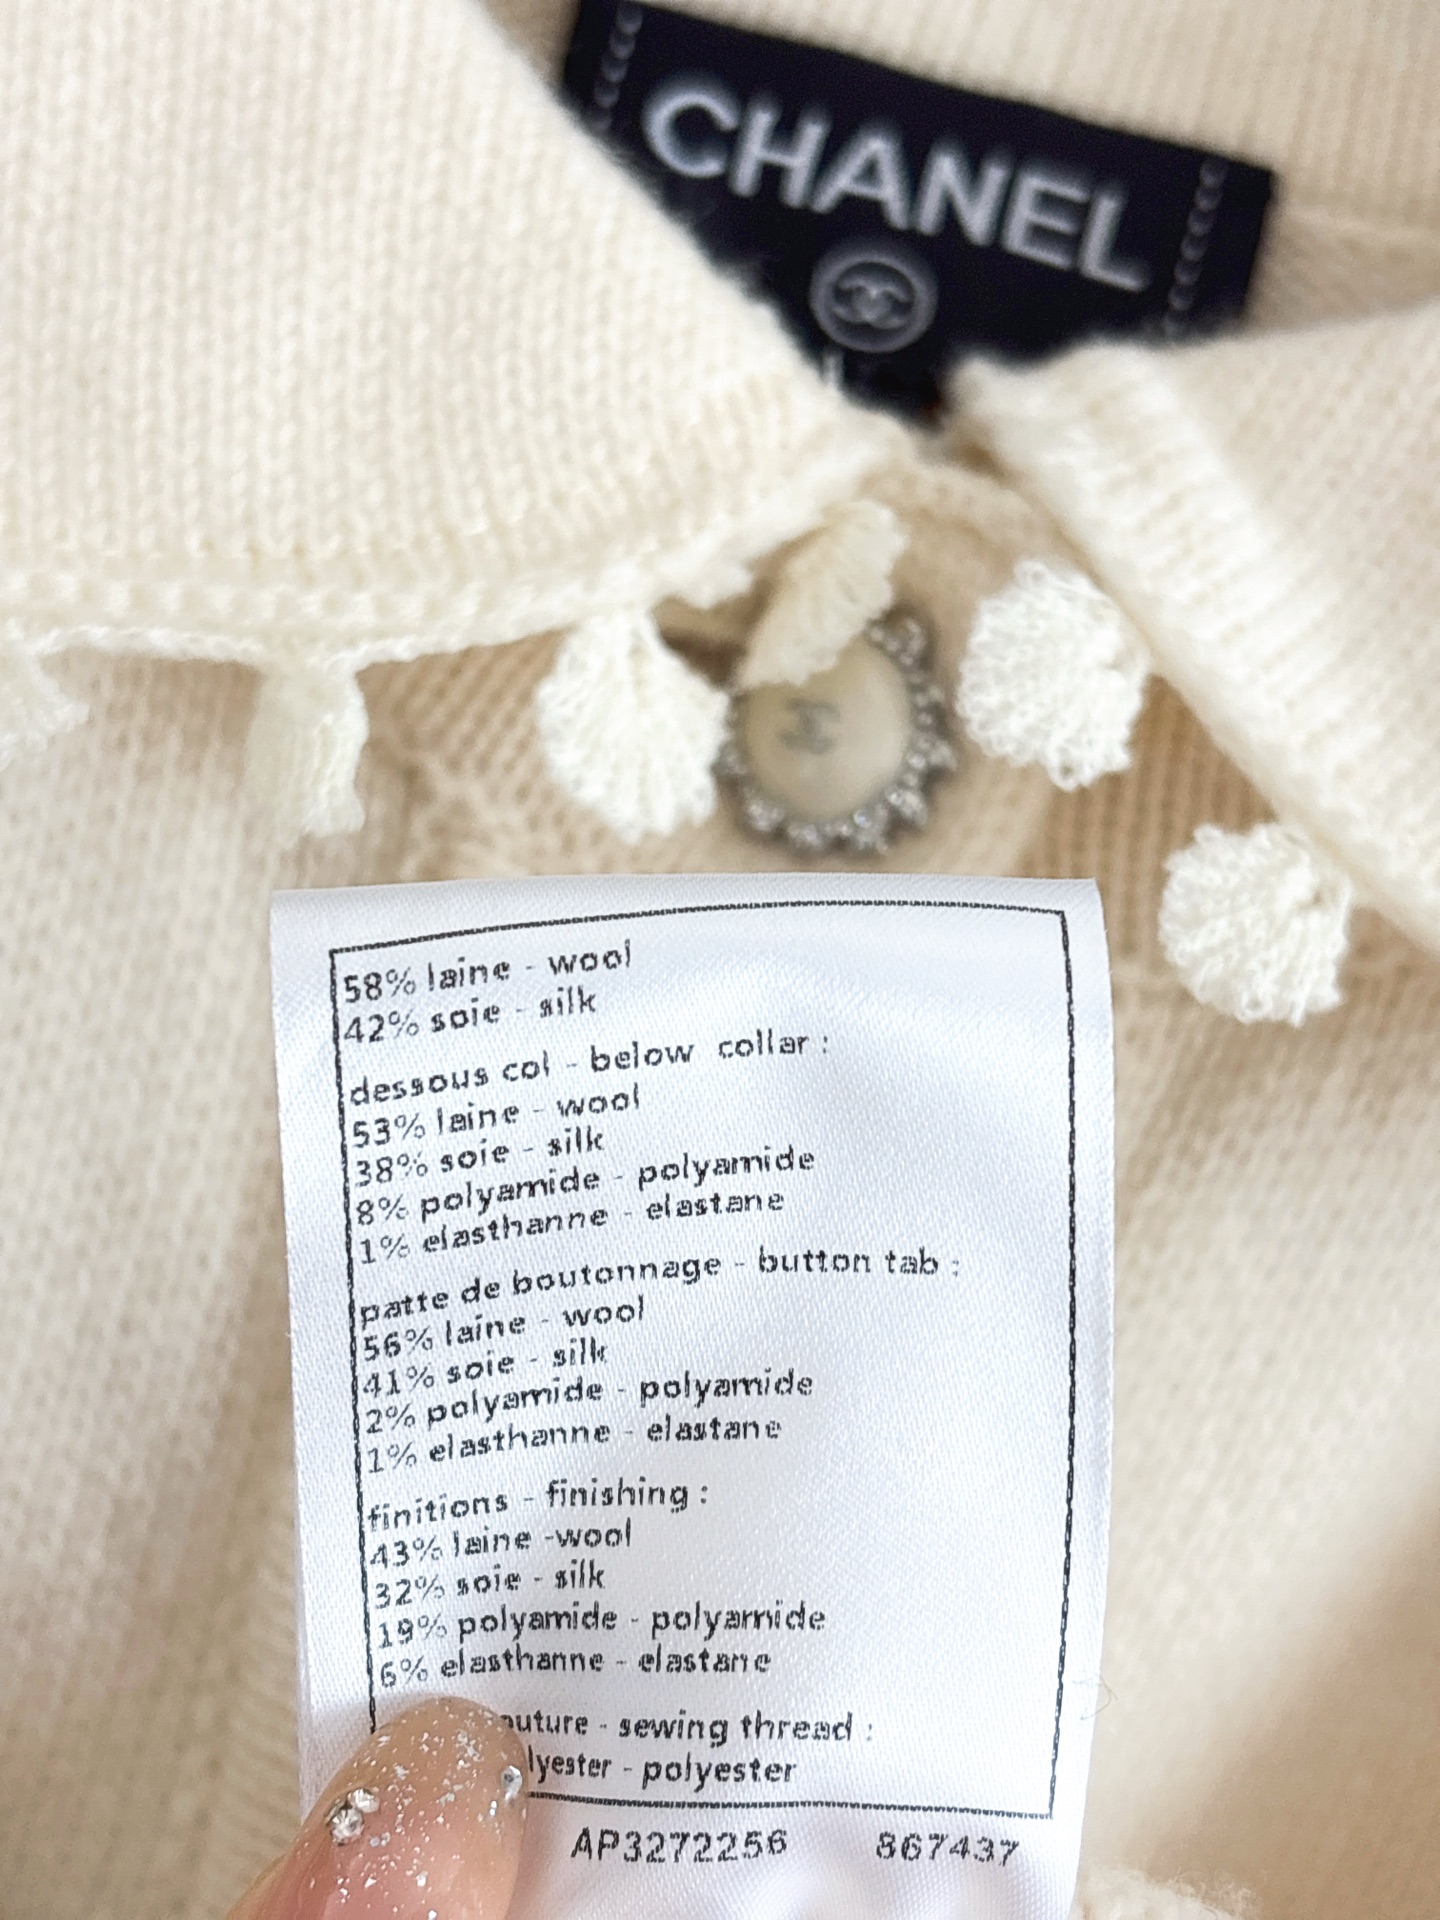 CHANEL
58% laine - wool
42% soie - silk
dessous col - below collar :
53% laine - wool
38% soie - silk
8% polyamide - polyamide
1% elasthanne - elastane
patte de boutonnage - button tab :
56% laine - wool
41% soie - silk
2% polyamide - polyamide
1% elasthanne - elastane
finitions - finishing :
43% laine -wool
32% soie - silk
19% polyamide - polyamide
6% elasthanne - elastane
- sewing thread :
- polyester
AP3272256 867437